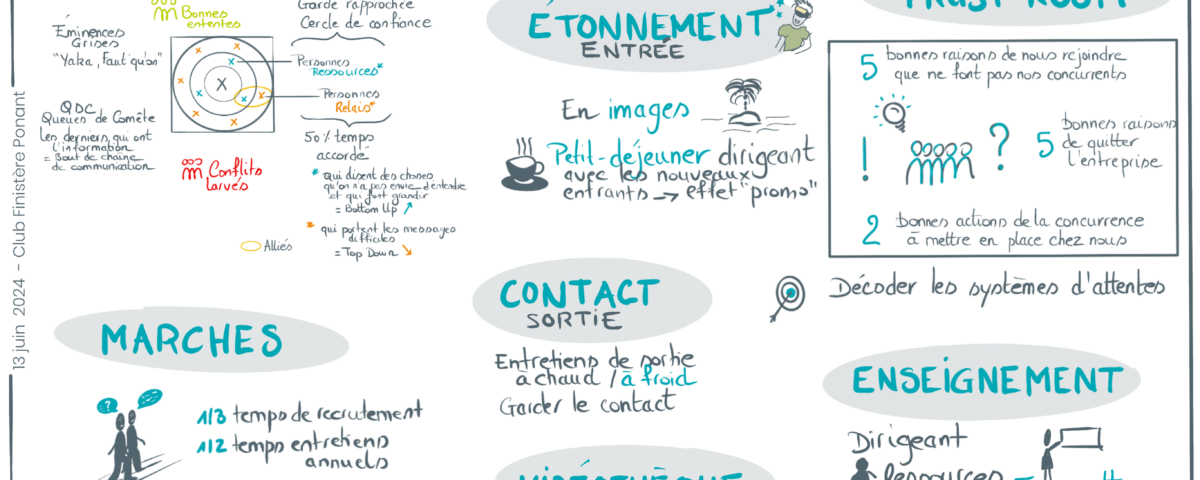 13 juin 2024 - Club Finistère Ponant
Bonnes
ententes
Éminences
Grises
"Yaka, Faut qu'on"
QDC
Queues de Comète
Les derniers qui ont
l'information
= Bout de chaîne
de communication
X
Conflits
larvés
Alliés
Garde rapprochée
Cercle de confiance
Personnes
Ressources*
Personnes
Relais*
50% temps
accordé
* qui disent des choses
qu'on n'a pas envie d'entendre
et qui font grandir
= Bottom Up
* qui portent les messages
difficiles
= Top Down
MARCHES
?
1/3 temps de recrutement
1/2 temps entretiens
annuels
ÉTONNEMENT
ENTRÉE
En images
Petit-déjeuner dirigeant
avec les nouveaux
entrants → effet "promo"
CONTACT
SORTIE
Entretiens de sortie
à chaud / à froid
Garder le contact
VIDÉOTHÈQUE
TRUST ROOM
5 bonnes raisons de nous rejoindre
que ne font pas nos concurrents
! ?
5 bonnes raisons
de quitter
l'entreprise
2 bonnes actions de la concurrence
à mettre en place chez nous
Décoder les systèmes d'attentes
ENSEIGNEMENT
Dirigeant
Ressources =